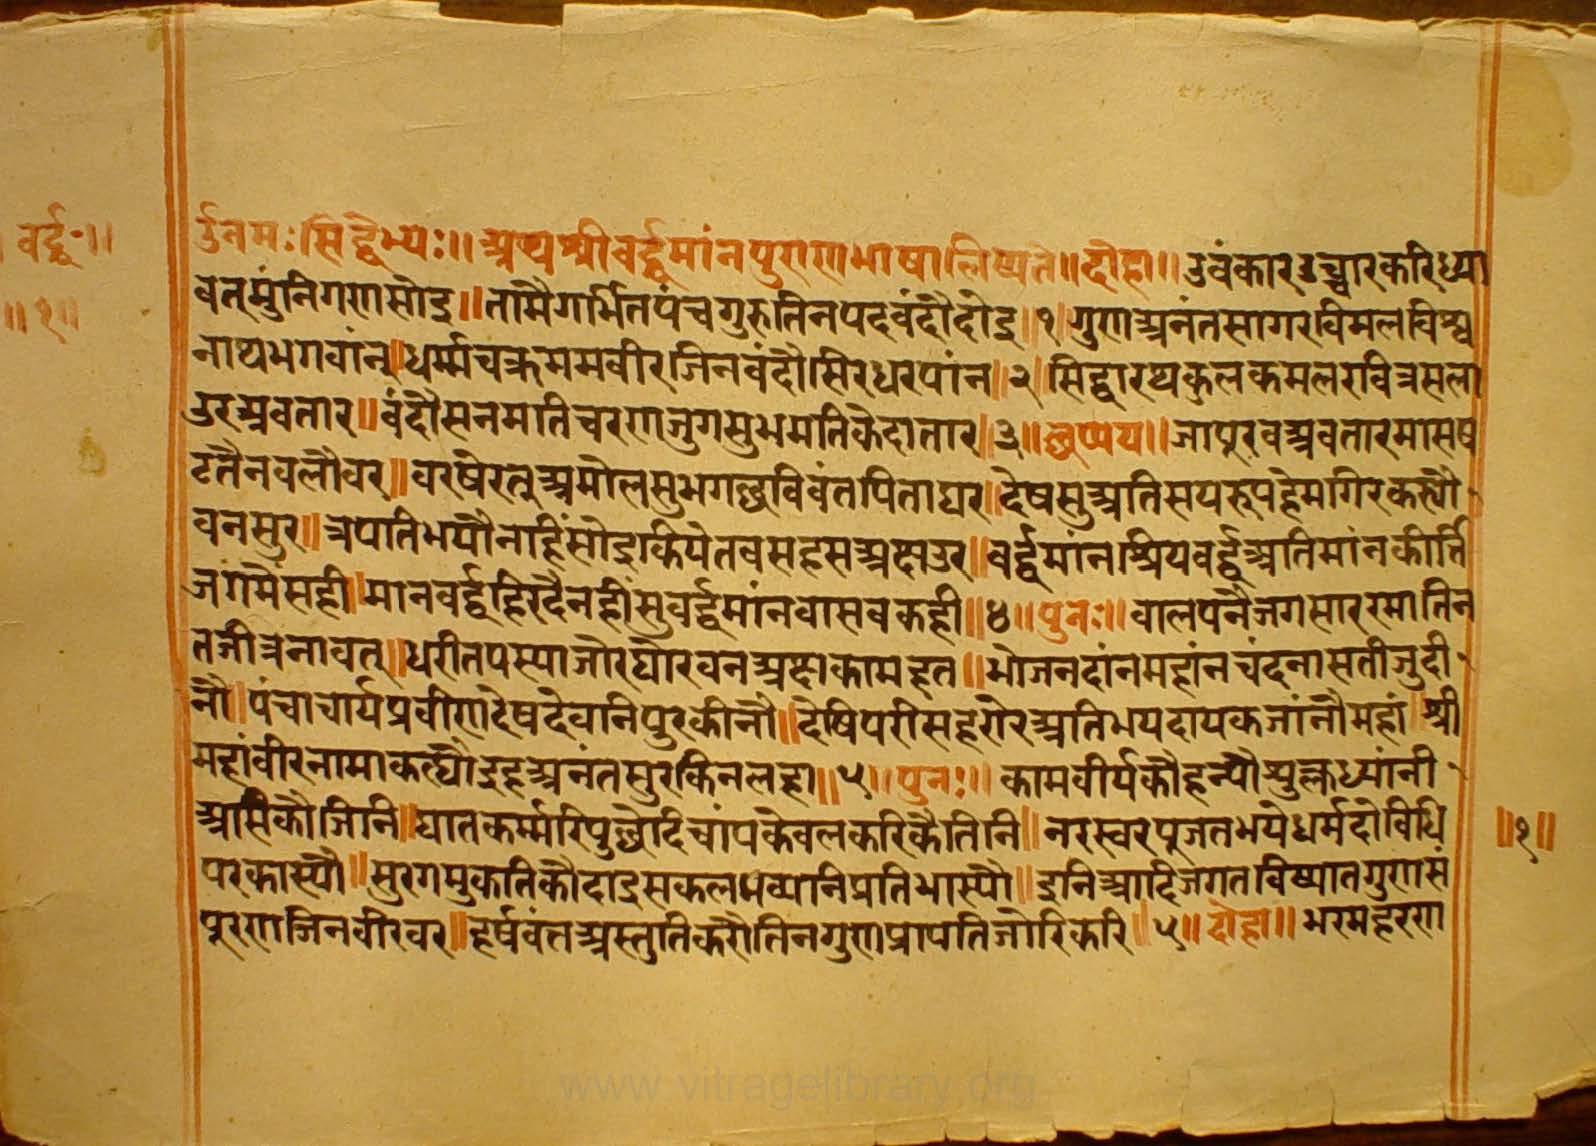 वर्द्ध॰॥
॥१॥
ॐनमःसिद्धेभ्यः॥अथश्रीवर्द्धमांनपुराणभाषालिष्यते॥दोहा॥उवंकारउच्चारकरिध्या
वतमुंनिगणसोइ॥तामैगर्भितपंचगुरुतिनपदवंदौदोइ॥१॥गुणअनंतसागरविमलविश्व
नाथभगवांन॥धर्म्मचक्रममवीरजिनवंदौसिरधरपांन॥२॥सिद्धारथकुलकमलरवित्रसला
उरअवतार॥वंदौसनमतिचरणजुगसुभमतिकेदातार॥३॥छप्पय॥जापुरवअवतारमासष
टतैनवलौवर॥वरषेरत्नअमोलसुभगछविवंतपिताघर॥देषसुअतिसयरूपहेमगिरकल्यौ
वनसुर॥त्रपतिभयौनाहिंसोइकियेतवसहसअष्टाउर॥वर्द्धमांनश्रियवर्द्धअतिमांनकीर्त्ति
जगमैसही॥मानवर्द्धहिरदैनहींसुवर्द्धमांनवासवकही॥४॥पुनः॥वालपनैजगसाररमातिन
तजीत्रनावत्॥धरीतपस्याजोरघोरवनअष्टाकामहत॥भोजनदांनमहांनचंदनासतीजुदी
नौ॥पंचाचार्यप्रवीणदेषदेवानिपुरकीनौ॥देषिपरीसहरोरअतिभयदायकजांनौमहां॥श्री
महांवीरनामाकल्यौइहअनंतसुरकिनलहा॥५॥पुनः॥कामवीर्यकौहन्यौशुक्लध्यांनी
असिकौजिनि॥घातकर्म्मरिपुछेदिचांपकेवलकरिकैतिनि॥नरस्वरपूजतभयेधर्मदोविधि
परकास्यौ॥सुरगमुकतिकौदाइसकलभव्यानिप्रतिभास्यौ॥इनिआदिजगतविष्यातगुणसं
पुरणजिनवीरवर॥हर्षवंतअस्तुतिकरौतिनगुणप्रापतिजोरिकरि॥५॥दोहा॥भरमहरण
॥१॥
www.vitragelibrary.org